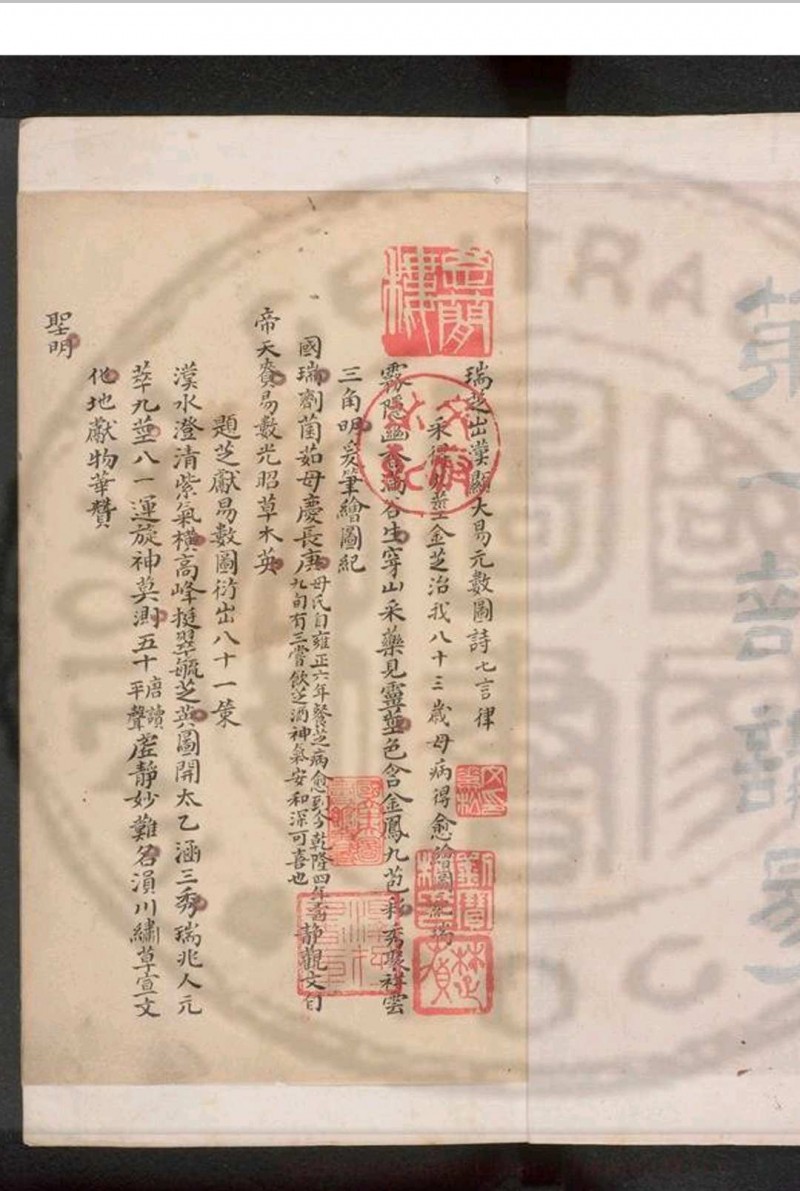 瑞芝出漢顯大易元數圖詩七言律
采得九莖金芝治我八十三歲母病得愈繪圖紀瑞
霧隱幽香滿谷生穿山采藥見靈莖色含金鳳九苞彩秀聚祥雲
三角明爰筆繪圖紀
國瑞劑菌茹母慶長庚母氏自雍正六年餐芝病愈到今乾隆四年壽九旬有三嘗飲芝酒神氣安和深可喜也靜觀文自
帝天賚易數光昭草木英
題芝獻易數圖衍出八十一策
漢水澄清紫氣橫高峰挺翠毓芝英圖開太乙涵三秀瑞兆人元
萃九莖八一運旋神莫測五十唐讀平聲虛靜妙難名溳川繡草宣文
化地獻物華贊
聖明